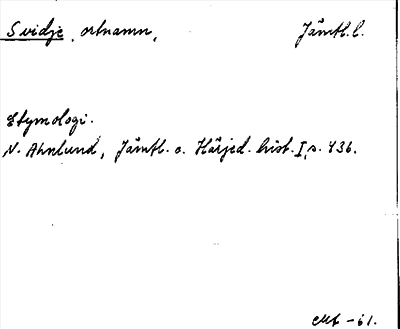 Svidje, ortnamn, Jämtl. l.
Etymologi.
N. Ahnlund, Jämtl. o. Härjed. hist. I, s. 436.
-61.